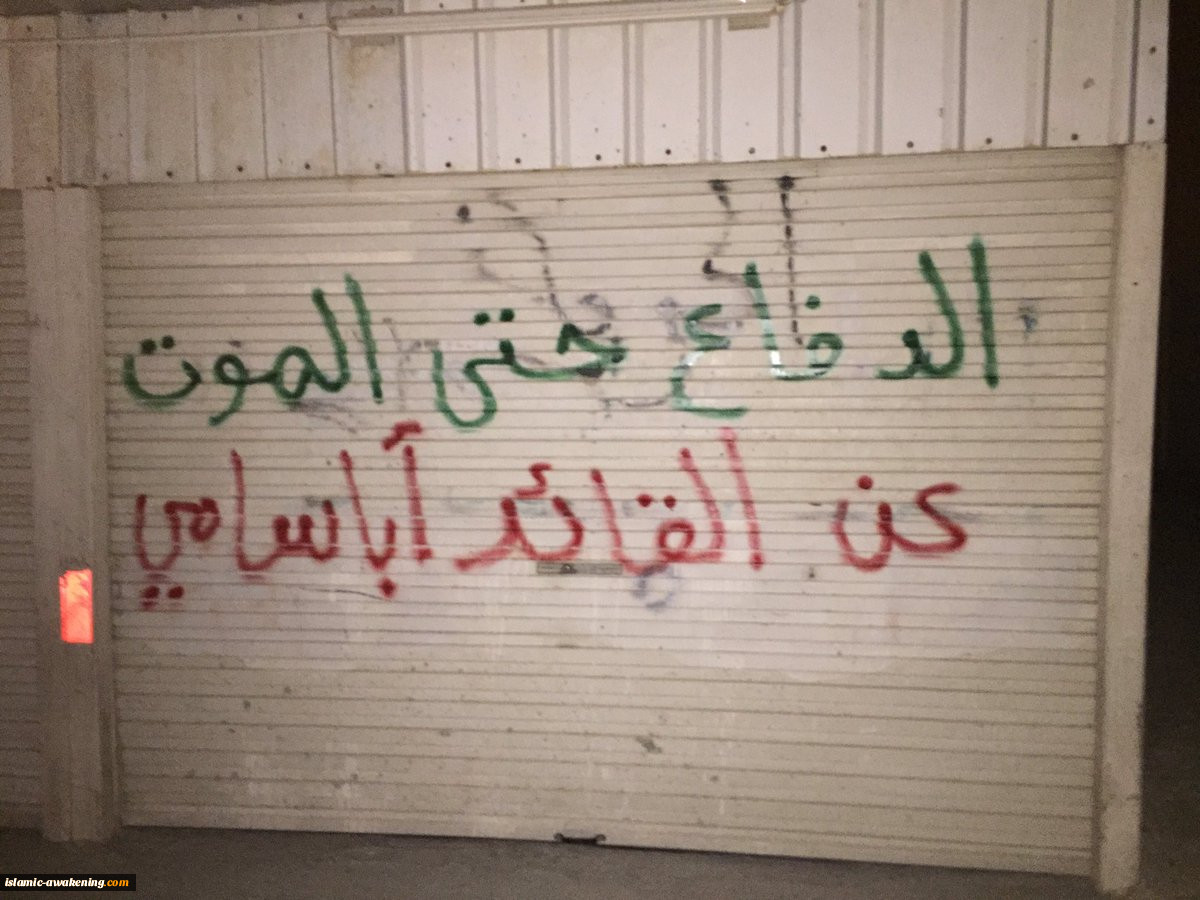 الدفاع حتى الموت
عن القائد أبا سامي
islamic-awakening.com